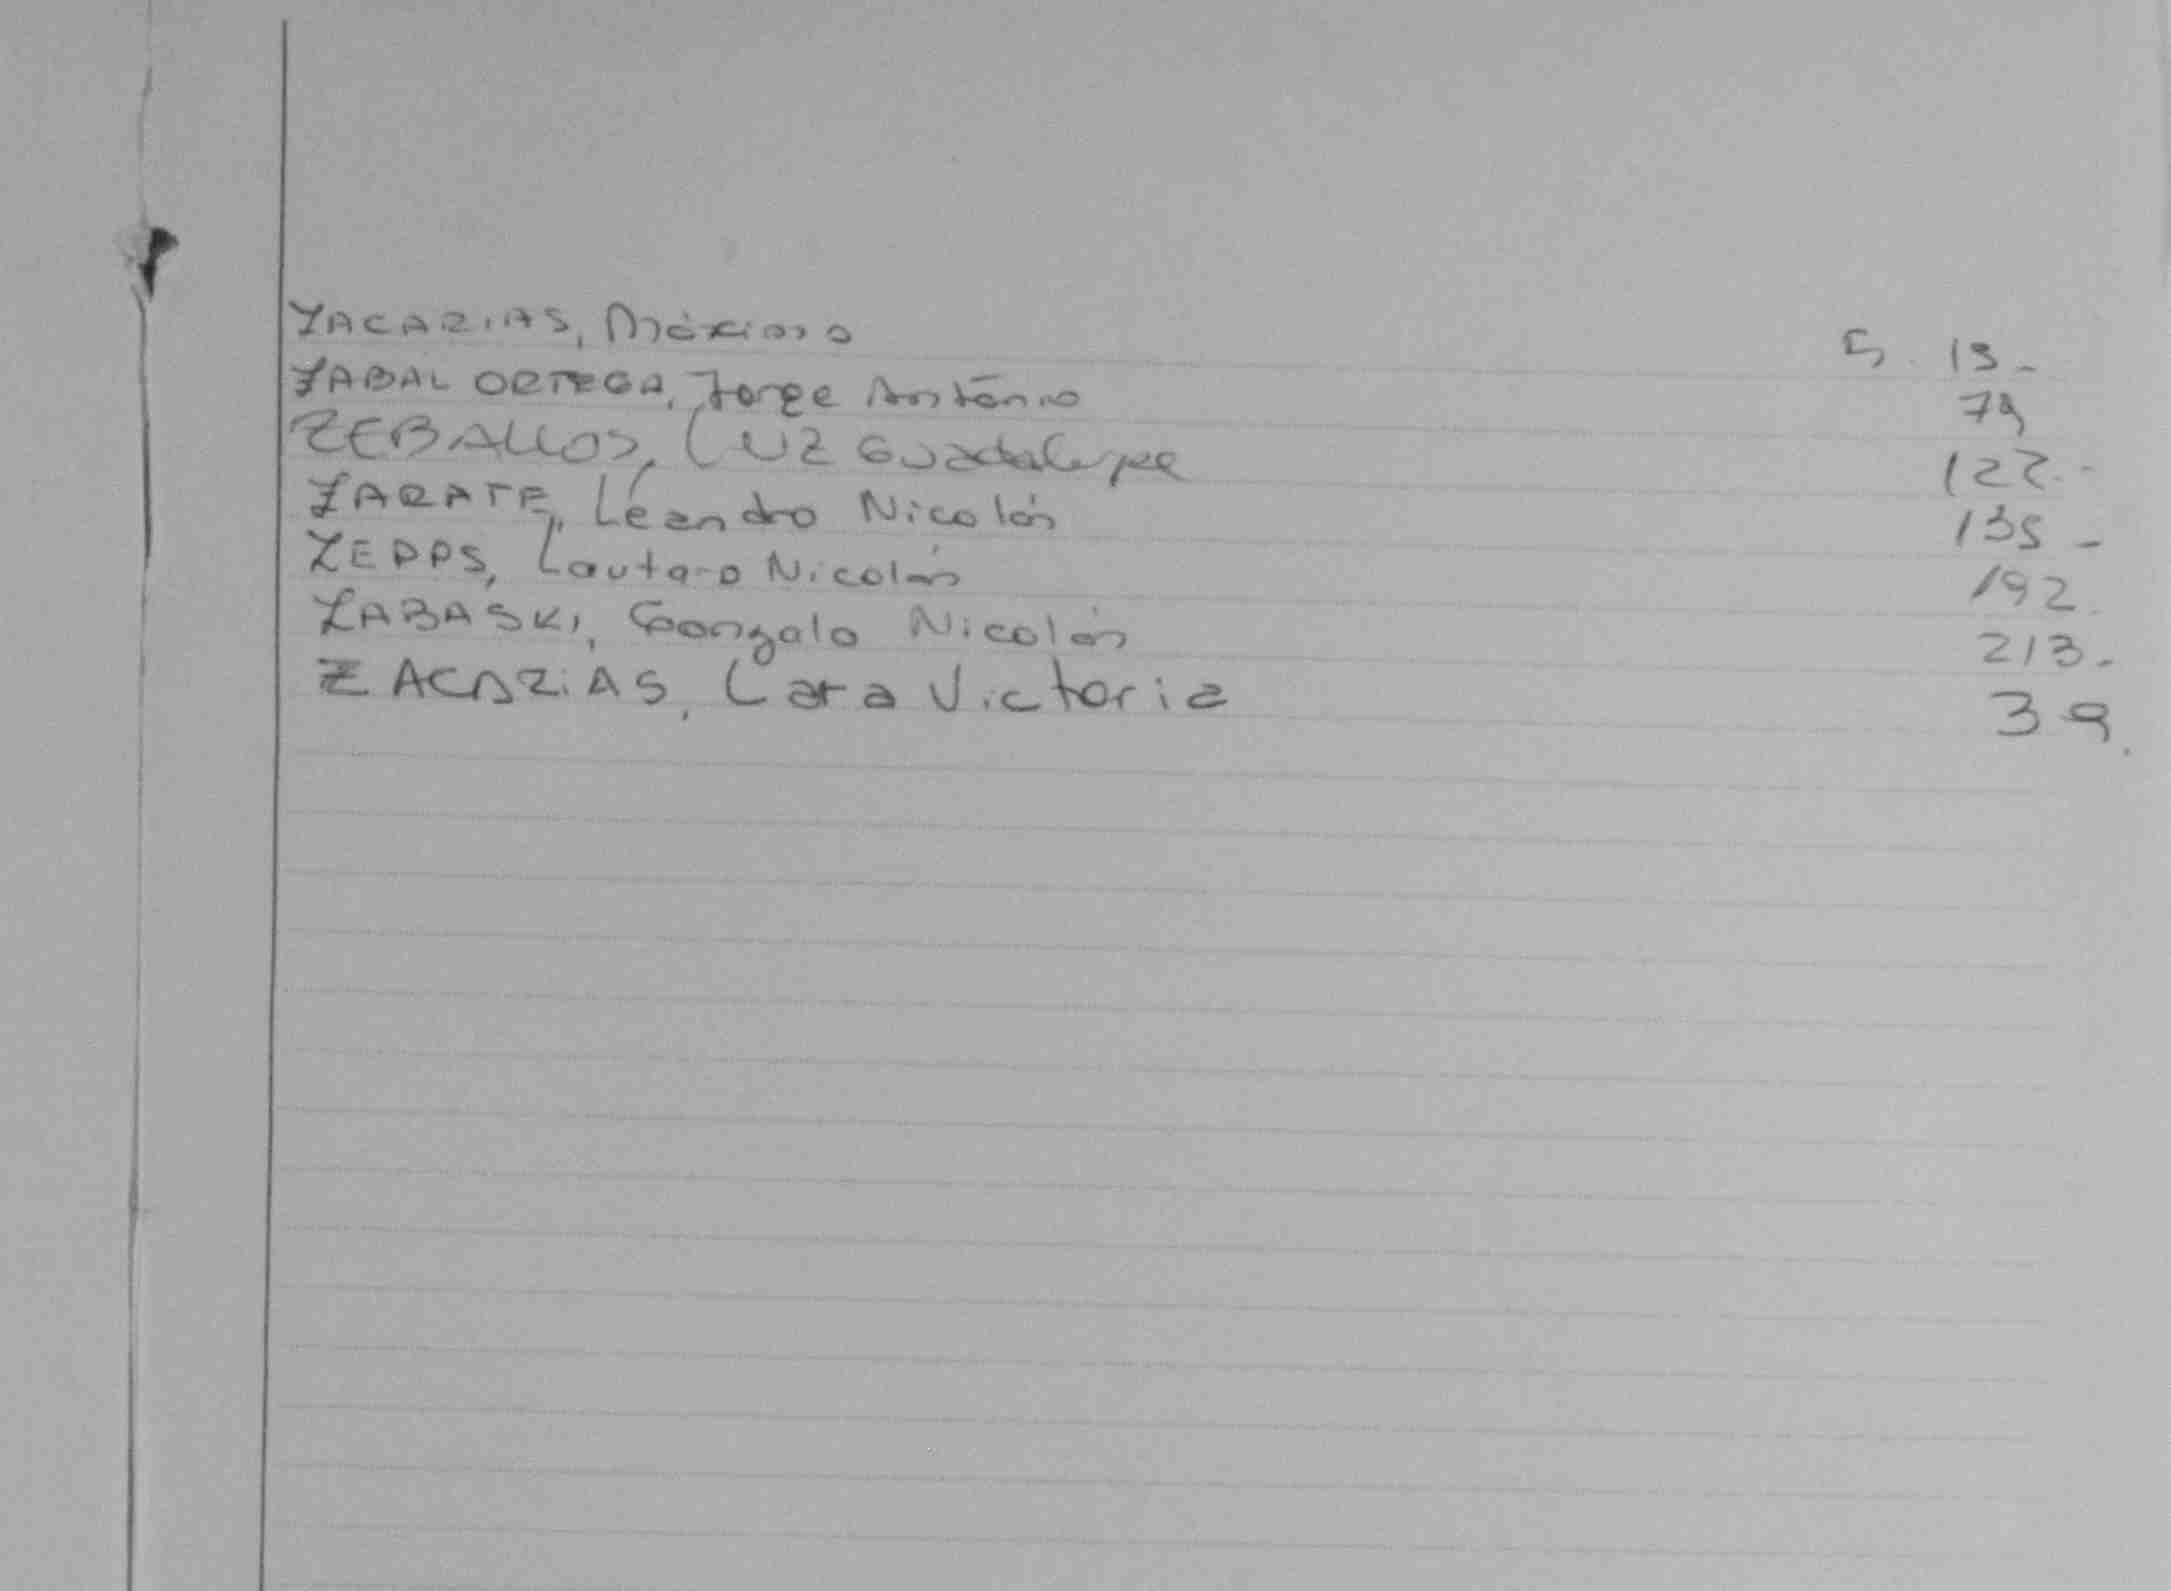 ZACARIAS, Máximo 5. 13-
ZABAL ORTEGA, Jorge Antonio 79
ZEBALLOS, Luz Guadalupe 122.-
ZARATE, Leandro Nicolás 135-
Lautaro Nicolás 192.
ZABASKI, Gonzalo Nicolás 213.
ZACARIAS, Lara Victoria 39.